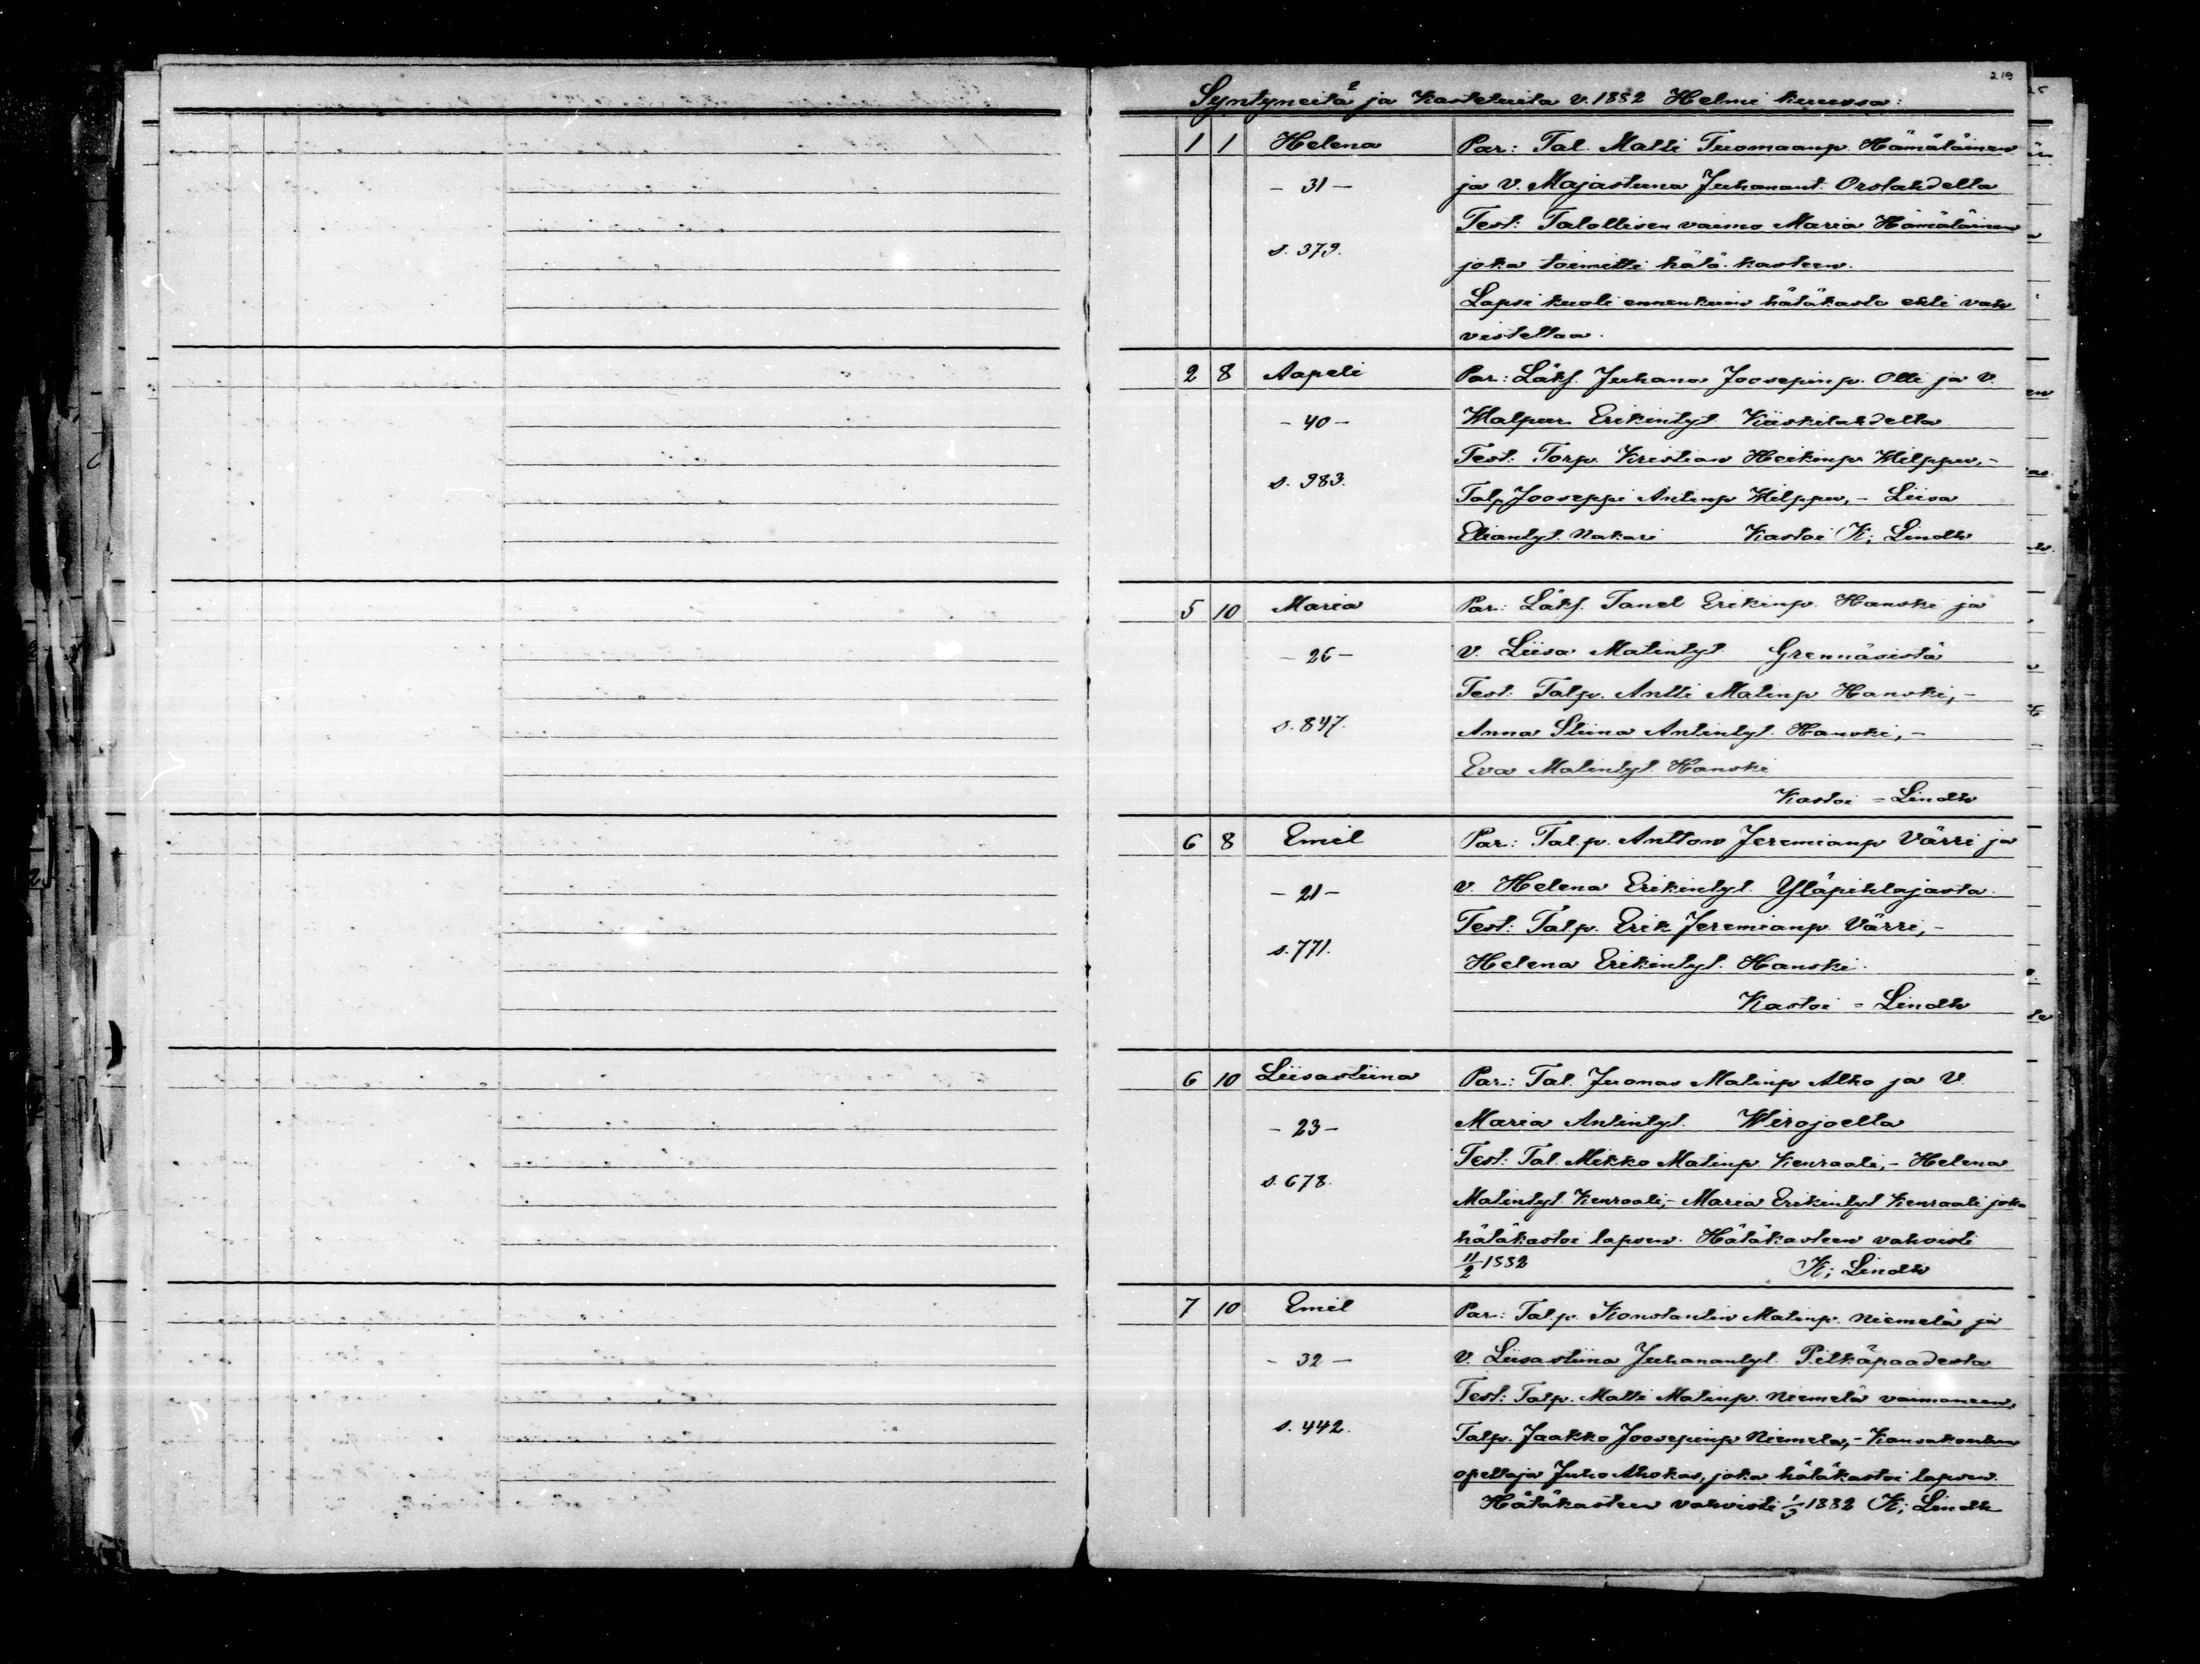 219
Syntyneitä ja Kastetuita v. 1882 Helmi kuussa:
1 1 Helena Par: Tal. Matti Tuomaanp. Hämäläinen
- 31 - ja v. Majastiina Juhanant. Orslahdelta
Test: Talollisen vaimo Maria Hämäläinen
s. 379. joka toimitti hätä-kasteen.
Lapsi kuoli ennenkuin hätäkaste ehti vah
visteltaa.
2 8 Aapeli Par: Läks. Juhana Joosepinp. Olli ja v.
- 40 - Walpuri Erikintyt. Kiiskilahdelta
Test: Torp. Kristian Heikinp. Hilppu, -
s. 383. Talp. Jooseppi Antinp. Hilppu, - Liisa
Eliantyt. Nakari Kastoi K; Lindh
5 10 Maria Par: Läks. Tanel Erikinp. Hanski ja
- 26 - v. Liisa Matintyt. Grennäsistä
Test: Talp. Antti Matinp. Hanski, -
s. 847. Anna Stiina Antintyt. Hanski, -
Eva Matintyt. Hanski
Kastoi = Lindh
6 8 Emil Par: Talp. Antton Jeremianp. Värri ja
- 21 - v. Helena Erikintyt. Yläpihlajasta.
Test: Talp. Erik Jeremianp. Värri, -
s. 771. Helena Erikintyt. Hanski.
Kastoi = Lindh
6 10 Liisastiina Par: Tal. Juonas Matinp. Alho ja v.
- 23 - Maria Antintyt. Wirojoelta
Test: Tal. Mikko Matinp. Kenraali, - Helena
s. 678. Matintyt. Kenraali, - Maria Erikintyt. Kenraali joka
hätäkastoi lapsen. Hätäkasteen vahvisti
11/2 1882 K; Lindh
7 10 Emil Par: Talp. Konstantin Matinp. Niemelä ja
- 32 - v. Liisastiina Juhanantyt. Pitkäpaadesta
Test: Talp. Matti Matinp. Niemelä vaimoneen,
s. 442. Talp. Jaakko Joosepinp. Niemelä, - Kansakoulun
opettaja Juho Ahokas, joka hätäkastoi lapsen.
Hätäkasteen vahvisti 1/3 1882 K; Lindh